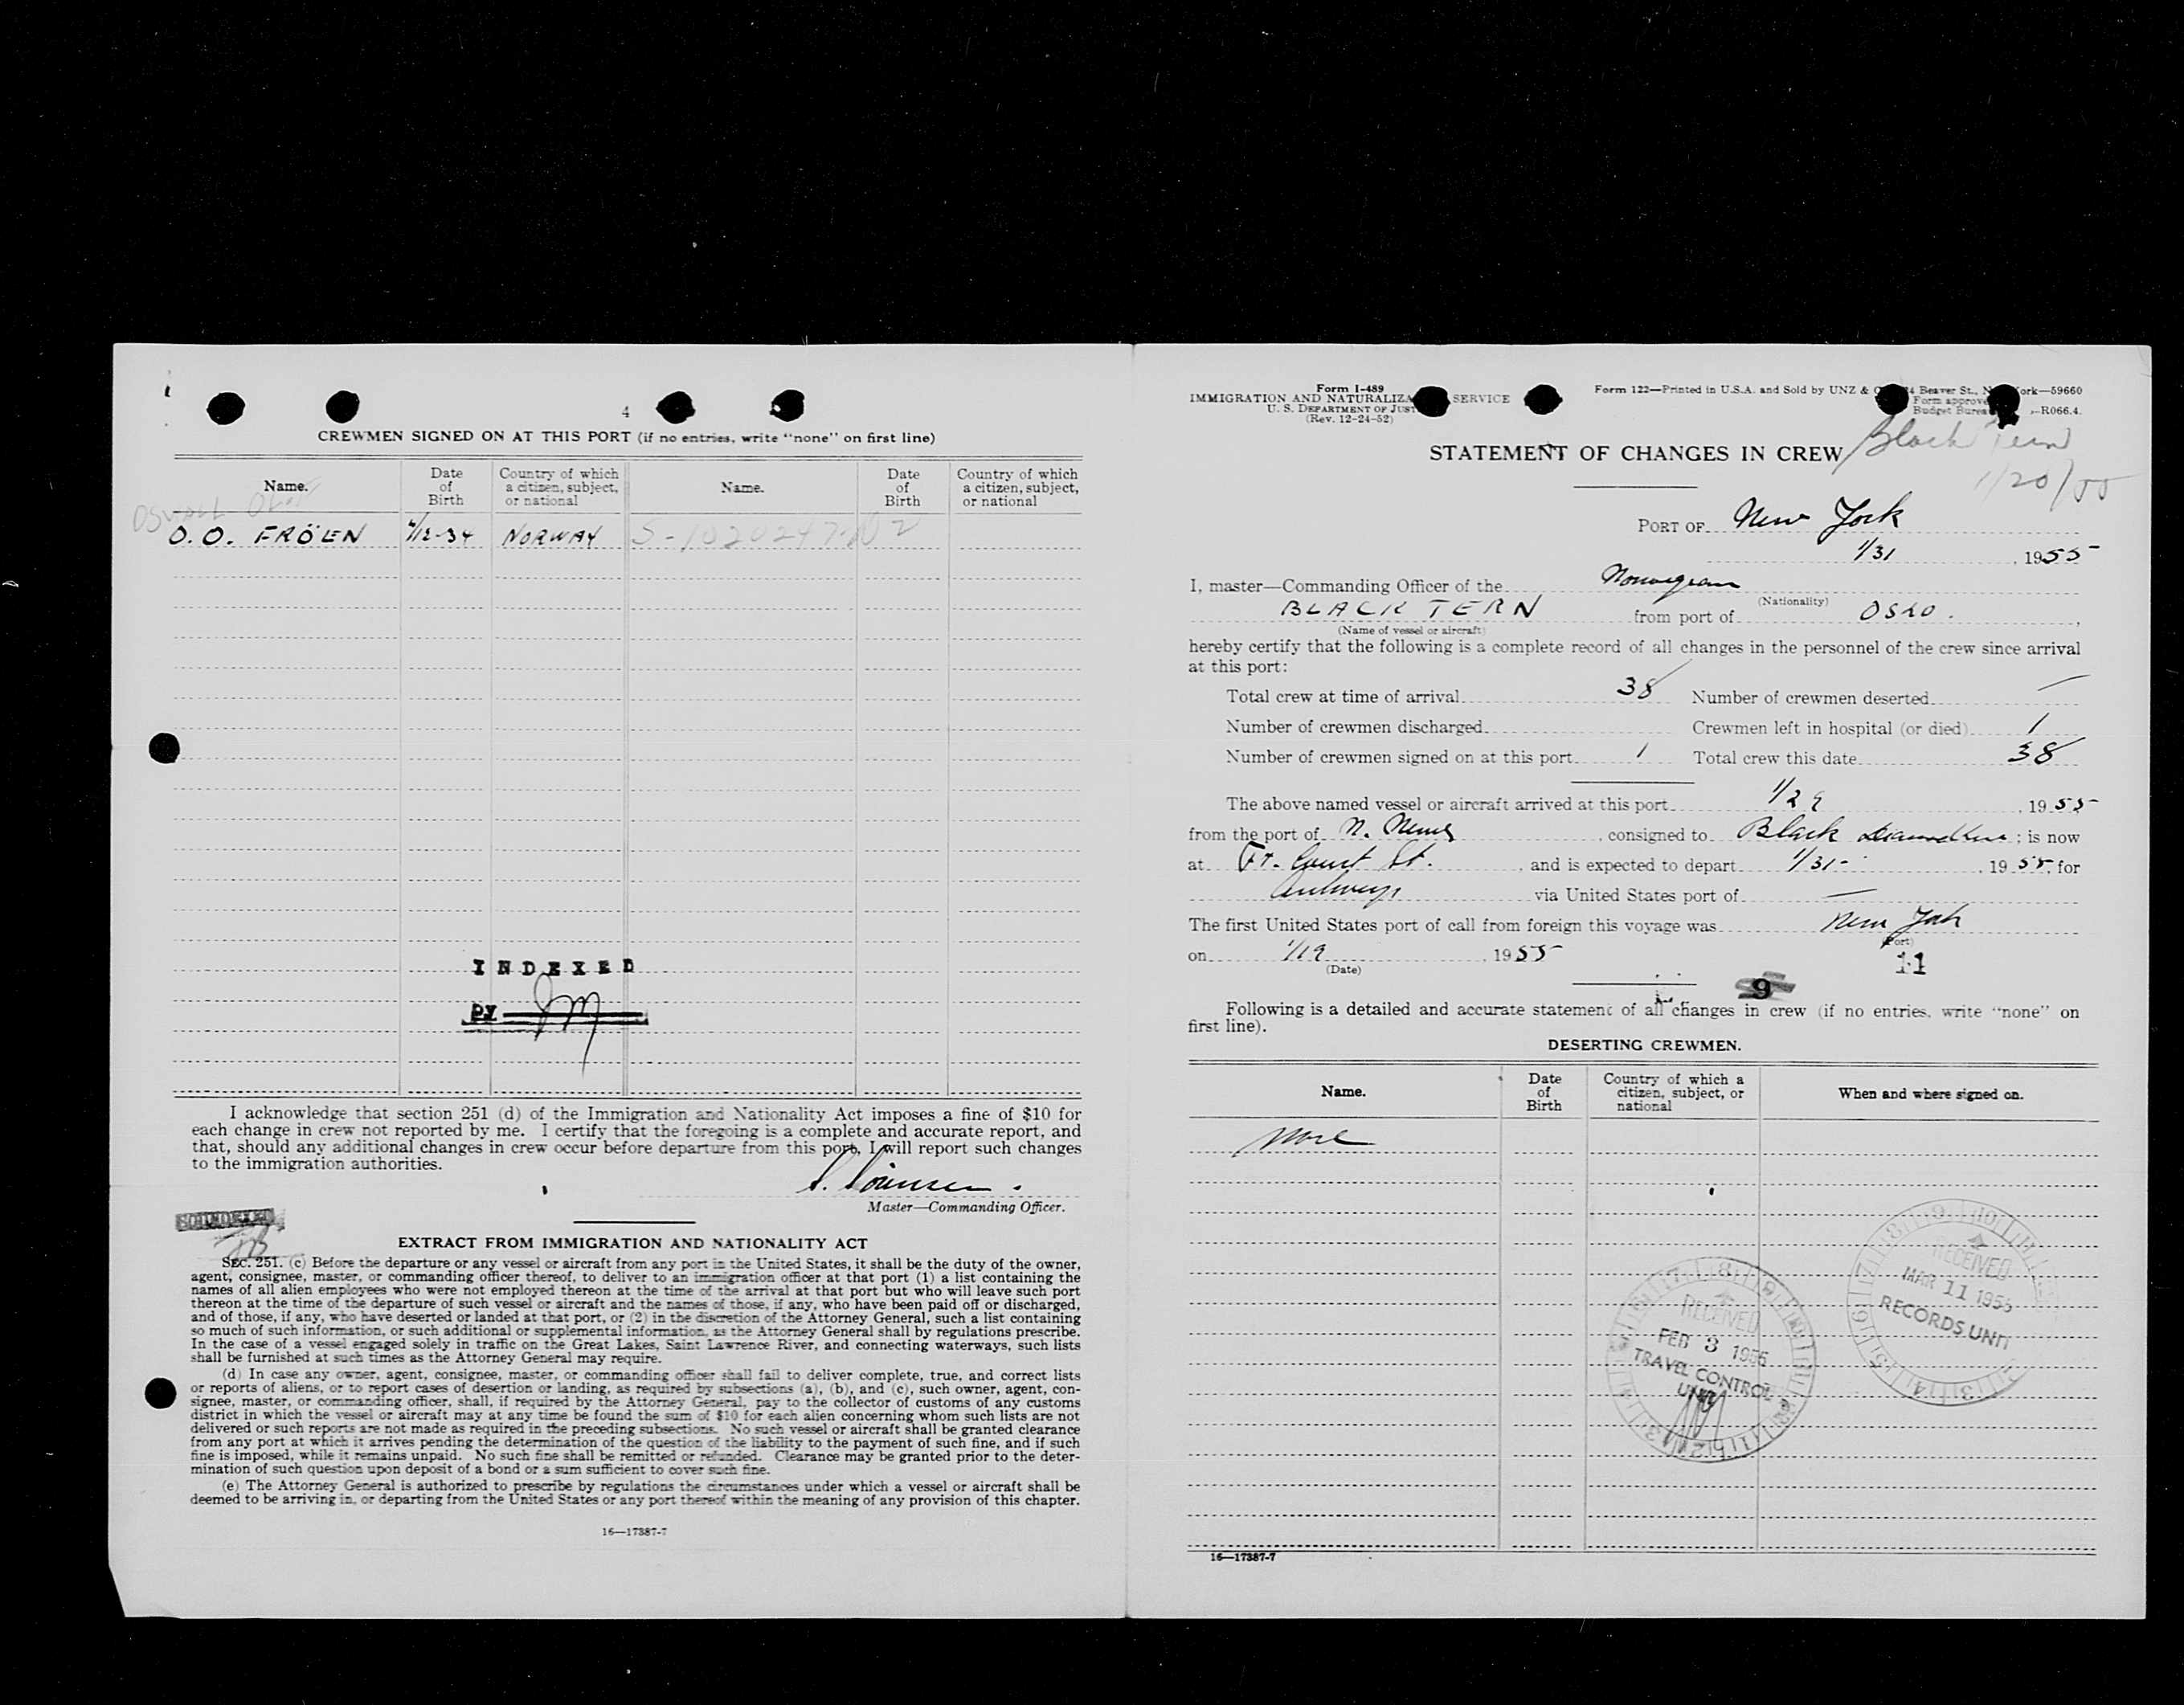 4
CREWMEN SIGNED ON AT THIS PORT (if no entries, write "none" on first line)
Name.
Date of Birth
Country of which a citizen, subject, or national
Name.
Date of Birth
Country of which a citizen, subject, or national
O. O. FRÖEN 4/12-34 NORWAY
INDEXED
by JM
I acknowledge that section 251 (d) of the Immigration and Nationality Act imposes a fine of $10 for
each change in crew not reported by me. I certify that the foregoing is a complete and accurate report, and
that, should any additional changes in crew occur before departure from this port, I will report such changes
to the immigration authorities.
Master—Commanding Officer.
EXTRACT FROM IMMIGRATION AND NATIONALITY ACT
SEC. 251. (c) Before the departure or any vessel or aircraft from any port in the United States, it shall be the duty of the owner,
agent, consignee, master, or commanding officer thereof, to deliver to an immigration officer at that port (1) a list containing the
names of all alien employees who were not employed thereon at the time of the arrival at that port but who will leave such port
thereon at the time of the departure of such vessel or aircraft and the names of those, if any, who have been paid off or discharged,
and of those, if any, who have deserted or landed at that port, or (2) in the discretion of the Attorney General, such a list containing
so much of such information, or such additional or supplemental information, as the Attorney General shall by regulations prescribe.
In the case of a vessel engaged solely in traffic on the Great Lakes, Saint Lawrence River, and connecting waterways, such lists
shall be furnished at such times as the Attorney General may require.
(d) In case any owner, agent, consignee, master, or commanding officer shall fail to deliver complete, true, and correct lists
or reports of aliens, or to report cases of desertion or landing, as required by subsections (a), (b), and (c), such owner, agent, con-
signee, master, or commanding officer, shall, if required by the Attorney General, pay to the collector of customs of any customs
district in which the vessel or aircraft may at any time be found the sum of $10 for each alien concerning whom such lists are not
delivered or such reports are not made as required in the preceding subsections. No such vessel or aircraft shall be granted clearance
from any port at which it arrives pending the determination of the question of the liability to the payment of such fine, and if such
fine is imposed, while it remains unpaid. No such fine shall be remitted or refunded. Clearance may be granted prior to the deter-
mination of such question upon deposit of a bond or a sum sufficient to cover such fine.
(e) The Attorney General is authorized to prescribe by regulations the circumstances under which a vessel or aircraft shall be
deemed to be arriving in, or departing from the United States or any port thereof within the meaning of any provision of this chapter.
16—17387-7
Form I-489
IMMIGRATION AND NATURALIZA SERVICE
U. S. DEPARTMENT OF JUST
(Rev. 12-24-52)
Form 122—Printed in U.S.A. and Sold by UNZ & Beaver St., N ork—59660
Form approve
Budget Burea -R066.4.
STATEMENT OF CHANGES IN CREW
Black Tern
1/20/55
PORT OF New York
1/31, 1955
I, master—Commanding Officer of the Norwegian
(Nationality)
BLACK TERN from port of OSLO.,
(Name of vessel or aircraft)
hereby certify that the following is a complete record of all changes in the personnel of the crew since arrival
at this port:
Total crew at time of arrival 38 Number of crewmen deserted —
Number of crewmen discharged Crewmen left in hospital (or died) 1
Number of crewmen signed on at this port 1 Total crew this date 38
The above named vessel or aircraft arrived at this port 1/29, 1955
from the port of N. News, consigned to Black Diamond Line; is now
at Ft. Court St., and is expected to depart 1/31-, 1955, for
Antwerp via United States port of —
The first United States port of call from foreign this voyage was New York
(Port)
on 1/19, 1955
(Date)
11
9
Following is a detailed and accurate statement of all changes in crew (if no entries, write "none" on
first line).
DESERTING CREWMEN.
Name.
Date of Birth
Country of which a citizen, subject, or national
When and where signed on.
None
RECEIVED
FEB 3 1955
TRAVEL CONTROL
UNIT
RECEIVED
MAR 11 1955
RECORDS UNIT
16—17387-7